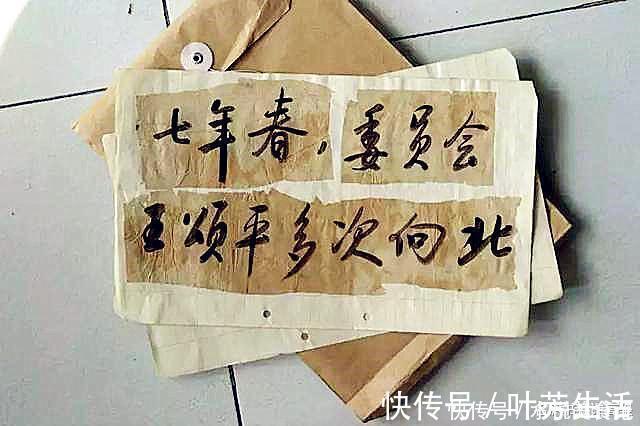 七年春，委员会
王颂平多次向北
快传号/叶芳生活